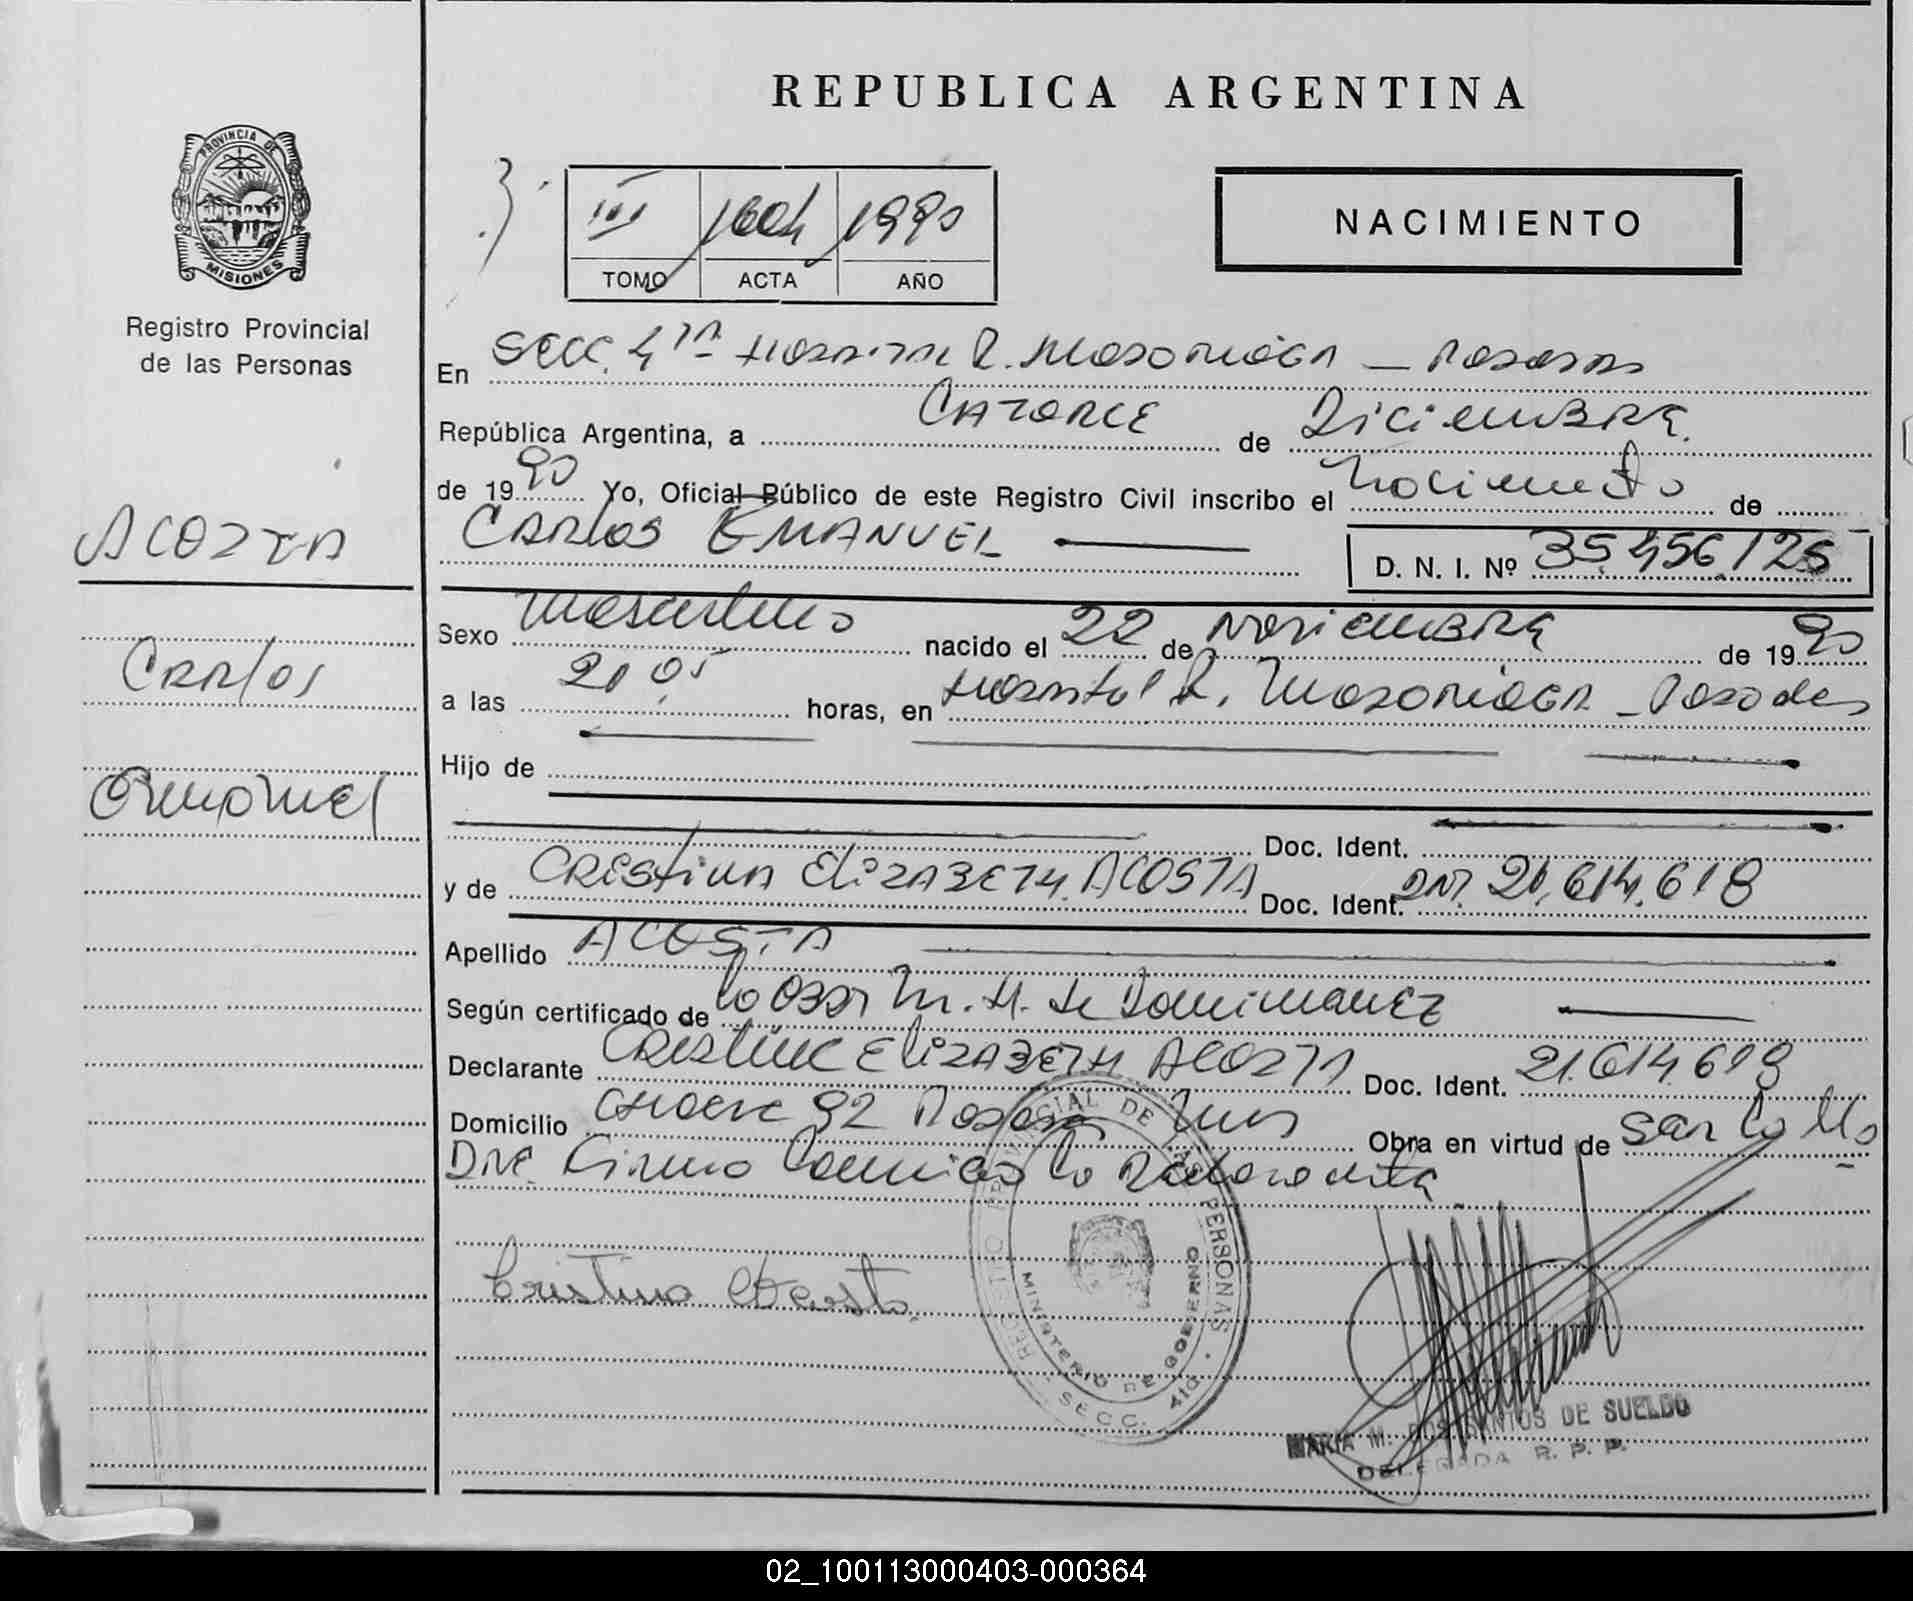 REPUBLICA ARGENTINA
PROVINCIA DE
MISIONES
Registro Provincial
de las Personas
III 1604 1990
TOMO ACTA AÑO
NACIMIENTO
En Secc. 4ta Hospital R. Madariaga - Posadas
República Argentina, a Catorce de Diciembre.
de 1990 Yo, Oficial Público de este Registro Civil inscribo el Nacimiento de
ACOSTA
CARLOS EMANUEL D. N. I. Nº 35.456.125
Sexo Masculino nacido el 22 de Noviembre de 1990
Carlos
a las 21 05 horas, en Hospital R. Madariaga - Posadas
Hijo de
Emanuel
Doc. Ident.
y de CRISTINA ELIZABETH ACOSTA Doc. Ident. DNI. 21.614.618
Apellido ACOSTA
Según certificado de la Obst M. H. de
Declarante Cristina ELIZABETH ACOSTA Doc. Ident. 21.614.618
Domicilio 92 Posadas Mnes Obra en virtud de
Firma la
Cristina Acosta
REGISTRO PROVINCIAL DE LAS PERSONAS
MINISTERIO DE GOBIERNO
SECC. 4ta.
MARIA M. DOS SANTOS DE SUELDO
DELEGADA R. P. P.
02_100113000403-000364